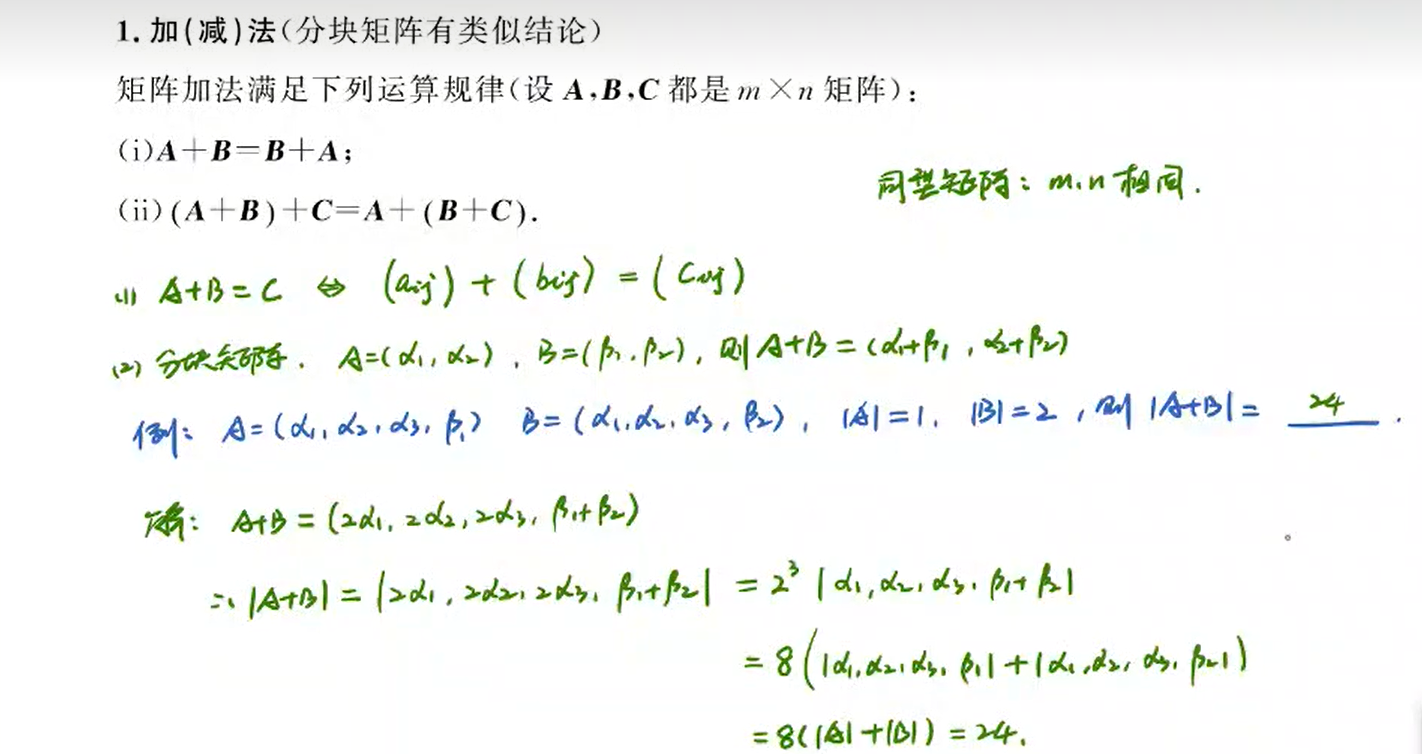 1. 加(减)法(分块矩阵有类似结论)
矩阵加法满足下列运算规律(设 A,B,C 都是 m×n 矩阵):
(i)A+B=B+A;
同型矩阵: m,n 相同.
(ii)(A+B)+C=A+(B+C).
(1) A+B=C ⇔ (aij)+(bij)=(cij)
(2) 分块矩阵. A=(α1,α2), B=(β1,β2), 则 A+B=(α1+β1,α2+β2)
例: A=(α1,α2,α3,β1) B=(α1,α2,α3,β2), |A|=1, |B|=2, 则 |A+B|= 24 .
解: A+B=(2α1,2α2,2α3,β1+β2)
∴ |A+B|=|2α1,2α2,2α3,β1+β2| =2³|α1,α2,α3,β1+β2|
=8(|α1,α2,α3,β1|+|α1,α2,α3,β2|)
=8(|A|+|B|)=24.